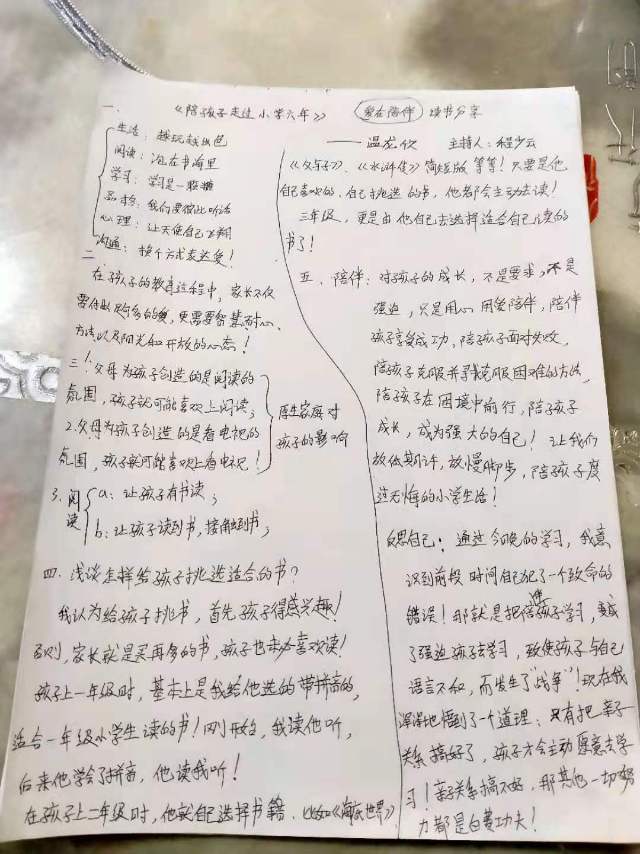 一、 《陪孩子走过小学六年》 爱在陪伴 读书分享
——温龙欣 主持人：程少云
生活：越玩越出色
阅读：泡在书海里
学习：学习是一颗糖
品格：我们要彼此听话
心理：让天使自己飞翔
沟通：换个方式表达爱！
二
在孩子的教育过程中，家长不仅
要付出许多的爱，更需要智慧、耐心、
方法以及阳光和开放的心态！
三 1.父母为孩子创造的是阅读的
氛围，孩子就可能喜欢上阅读；
2.父母为孩子创造的是看电视的
氛围，孩子就可能喜欢上看电视！
原生家庭对
孩子的影响
3.阅读
a：让孩子有书读；
b：让孩子读到书，接触到书；
四、浅谈怎样给孩子挑选适合的书？
我认为给孩子挑书，首先孩子得感兴趣！
否则，家长就是买再多的书，孩子也未必喜欢读！
孩子上一年级时，基本上是我给他选的带拼音的，
适合一年级小学生读的书！刚开始，我读他听，
后来他学会了拼音，他读我听！
在孩子上二年级时，他就自己选择书籍、比如《海底世界》
《父与子》、《水浒传》简短版等等！只要是他
自己喜欢的、自己挑选的书，他都会主动去读！
三年级，更是由他自己去选择适合自己读的
书了！
五、陪伴：对孩子的成长，不是要求，不是
强迫，只是用心用爱陪伴，陪伴
孩子享受成功，陪孩子面对失败，
陪孩子克服并寻找克服困难的方法，
陪孩子在困境中前行，陪孩子
成长，成为强大的自己！让我们
放低期许，放慢脚步，陪孩子度
过无悔的小学生活！
反思自己：通过今晚的学习，我意
识到前段时间自己犯了一个致命的
错误！那就是把陪孩子学习，变成
了强迫孩子去学习，致使孩子与自己
语言不和，而发生了"战争"！现在我
深深地悟到了一个道理：只有把亲子
关系搞好了，孩子才会主动愿意去学
习！亲子关系搞不好，那其他一切努
力都是白费功夫！